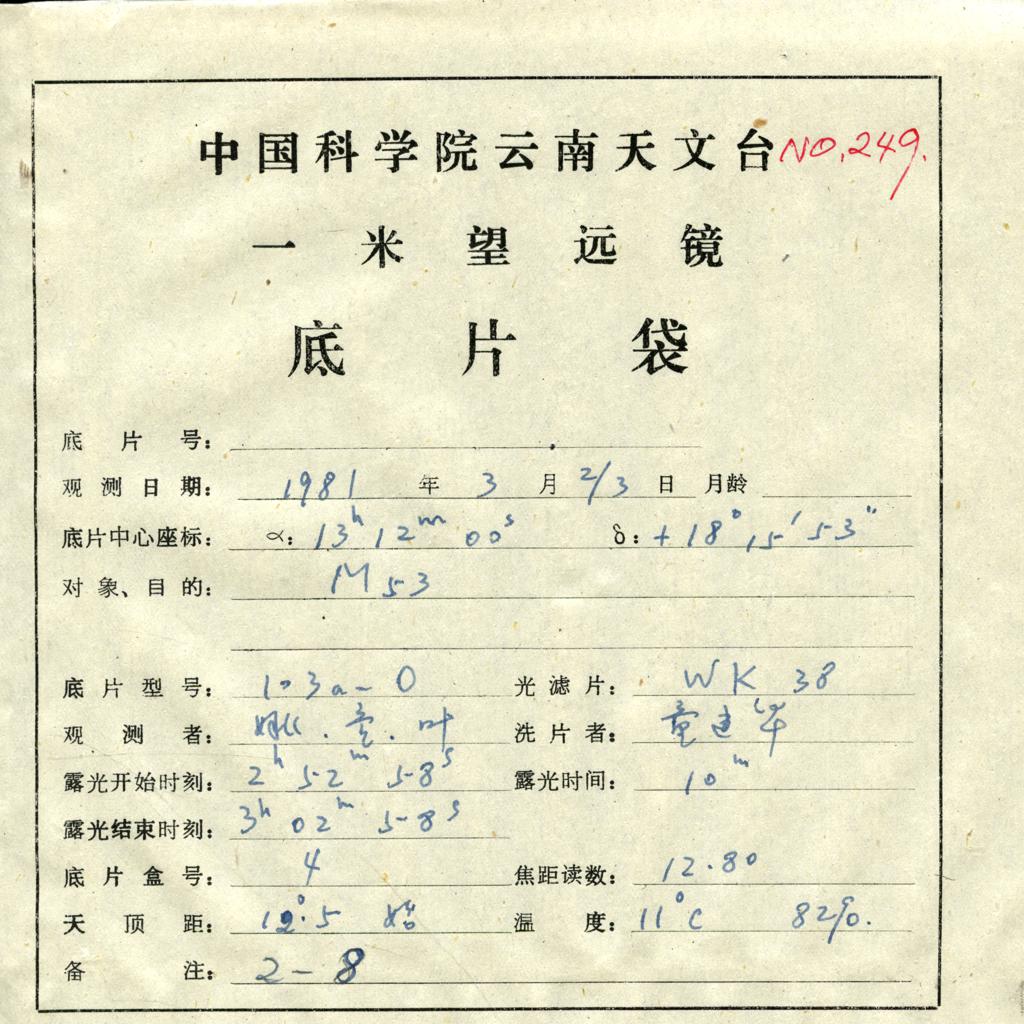 中国科学院云南天文台 NO.249.
一米望远镜
底片袋
底片号:
观测日期: 1981 年 3 月 2/3 日 月龄
底片中心座标: α: 13h 12m 00s δ: +18° 15′ 53″
对象、目的: M53
底片型号: 103a-O 光滤片: WK 38
观测者: 姚.童.叶 洗片者: 童建华
露光开始时刻: 2h 52m 58s 露光时间: 10m
露光结束时刻: 3h 02m 58s
底片盒号: 4 焦距读数: 12.80
天顶距: 12°.5 始 温度: 11°C 82%.
备注: 2-8